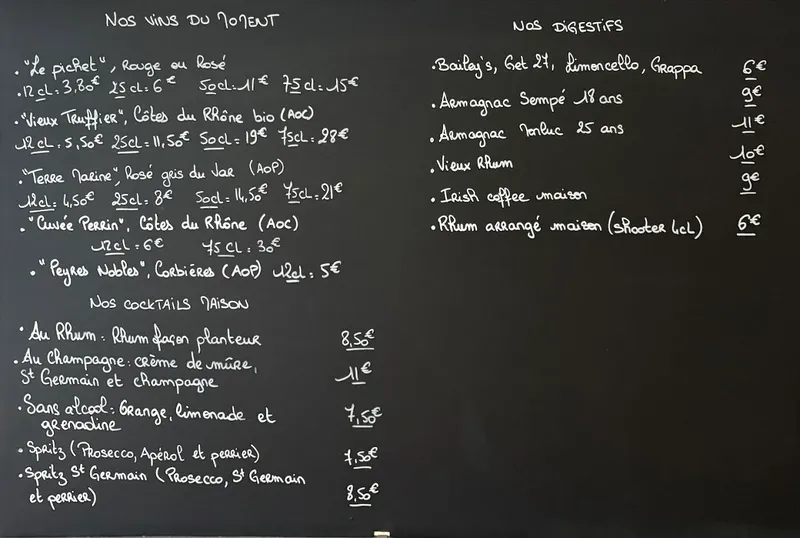 Nos vins du moment
• "Le pichet", Rouge ou Rosé
• 12cl: 3,80€ 25cl: 6€ 50cl: 11€ 75cl: 15€
• "Vieux Truffier", Côtes du Rhône bio (AOC)
12cl: 5,50€ 25cl: 11,50€ 50cl: 19€ 75cl: 28€
• "Terre Marine", Rosé gris du Var (AOP)
12cl: 4,50€ 25cl: 8€ 50cl: 14,50€ 75cl: 21€
• "Cuvée Perrin", Côtes du Rhône (AOC)
12cl: 6€ 75cl: 30€
• "Peyres Nobles", Corbières (AOP) 12cl: 5€
Nos cocktails maison
• Au Rhum: Rhum façon planteur 8,50€
• Au Champagne: crème de mûre,
St Germain et champagne 11€
• Sans alcool: Orange, limonade et
grenadine 7,50€
• Spritz (Prosecco, Apérol et perrier) 7,50€
• Spritz St Germain (Prosecco, St Germain
et perrier) 8,50€
Nos digestifs
• Bailey's, Get 27, Limoncello, Grappa 6€
• Armagnac Sempé 18 ans 9€
• Armagnac Monluc 25 ans 11€
• Vieux Rhum 10€
• Irish coffee maison 9€
• Rhum arrangé maison (shooter 4cl) 6€